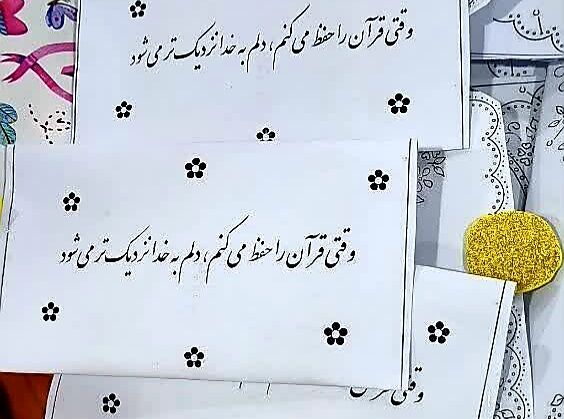 وقتی قرآن را حفظ می‌کنم، دلم به خدا نزدیک‌تر می‌شود
وقتی قرآن را حفظ می‌کنم، دلم به خدا نزدیک‌تر می‌شود
وقتی قرآن